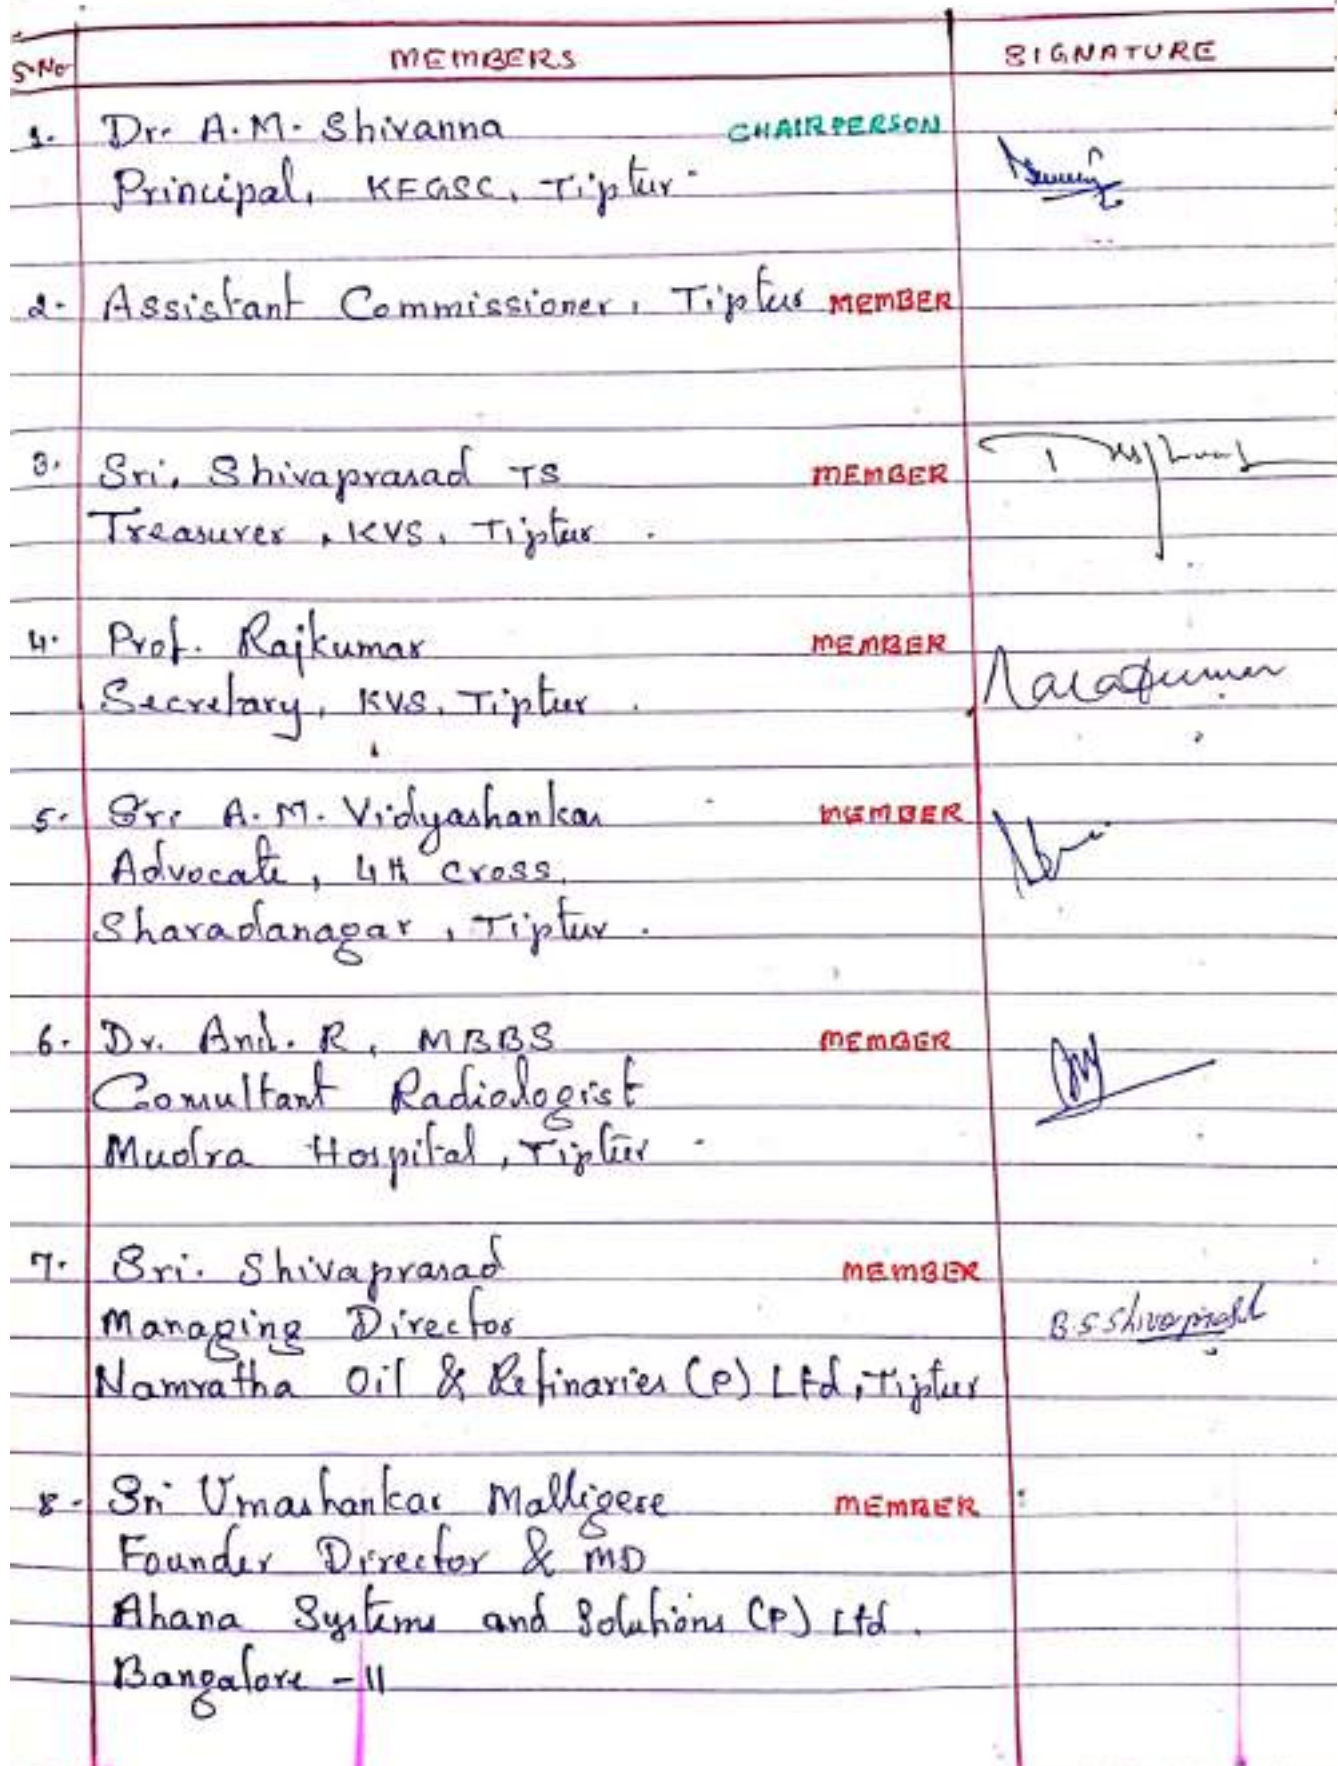 S.No MEMBERS SIGNATURE
1. Dr. A.M. Shivanna CHAIRPERSON
Principal, KFGSC, Tiptur.
2. Assistant Commissioner, Tiptur MEMBER
3. Sri. Shivaprasad TS MEMBER
Treasurer, KVS, Tiptur.
4. Prof. Rajkumar MEMBER
Secretary, KVS, Tiptur.
5. Sri A.M. Vidyashankar MEMBER
Advocate, 4th cross,
Sharadanagar, Tiptur.
6. Dr. Anil. R, MBBS MEMBER
Consultant Radiologist
Mudra Hospital, Tiptur.
7. Sri. Shivaprasad MEMBER
Managing Director B.S Shivaprasad
Namratha Oil & Refinaries (P) Ltd, Tiptur
8. Sri Umashankar Malligere MEMBER
Founder Director & MD
Ahana Systems and Solutions (P) Ltd.
Bangalore - 11